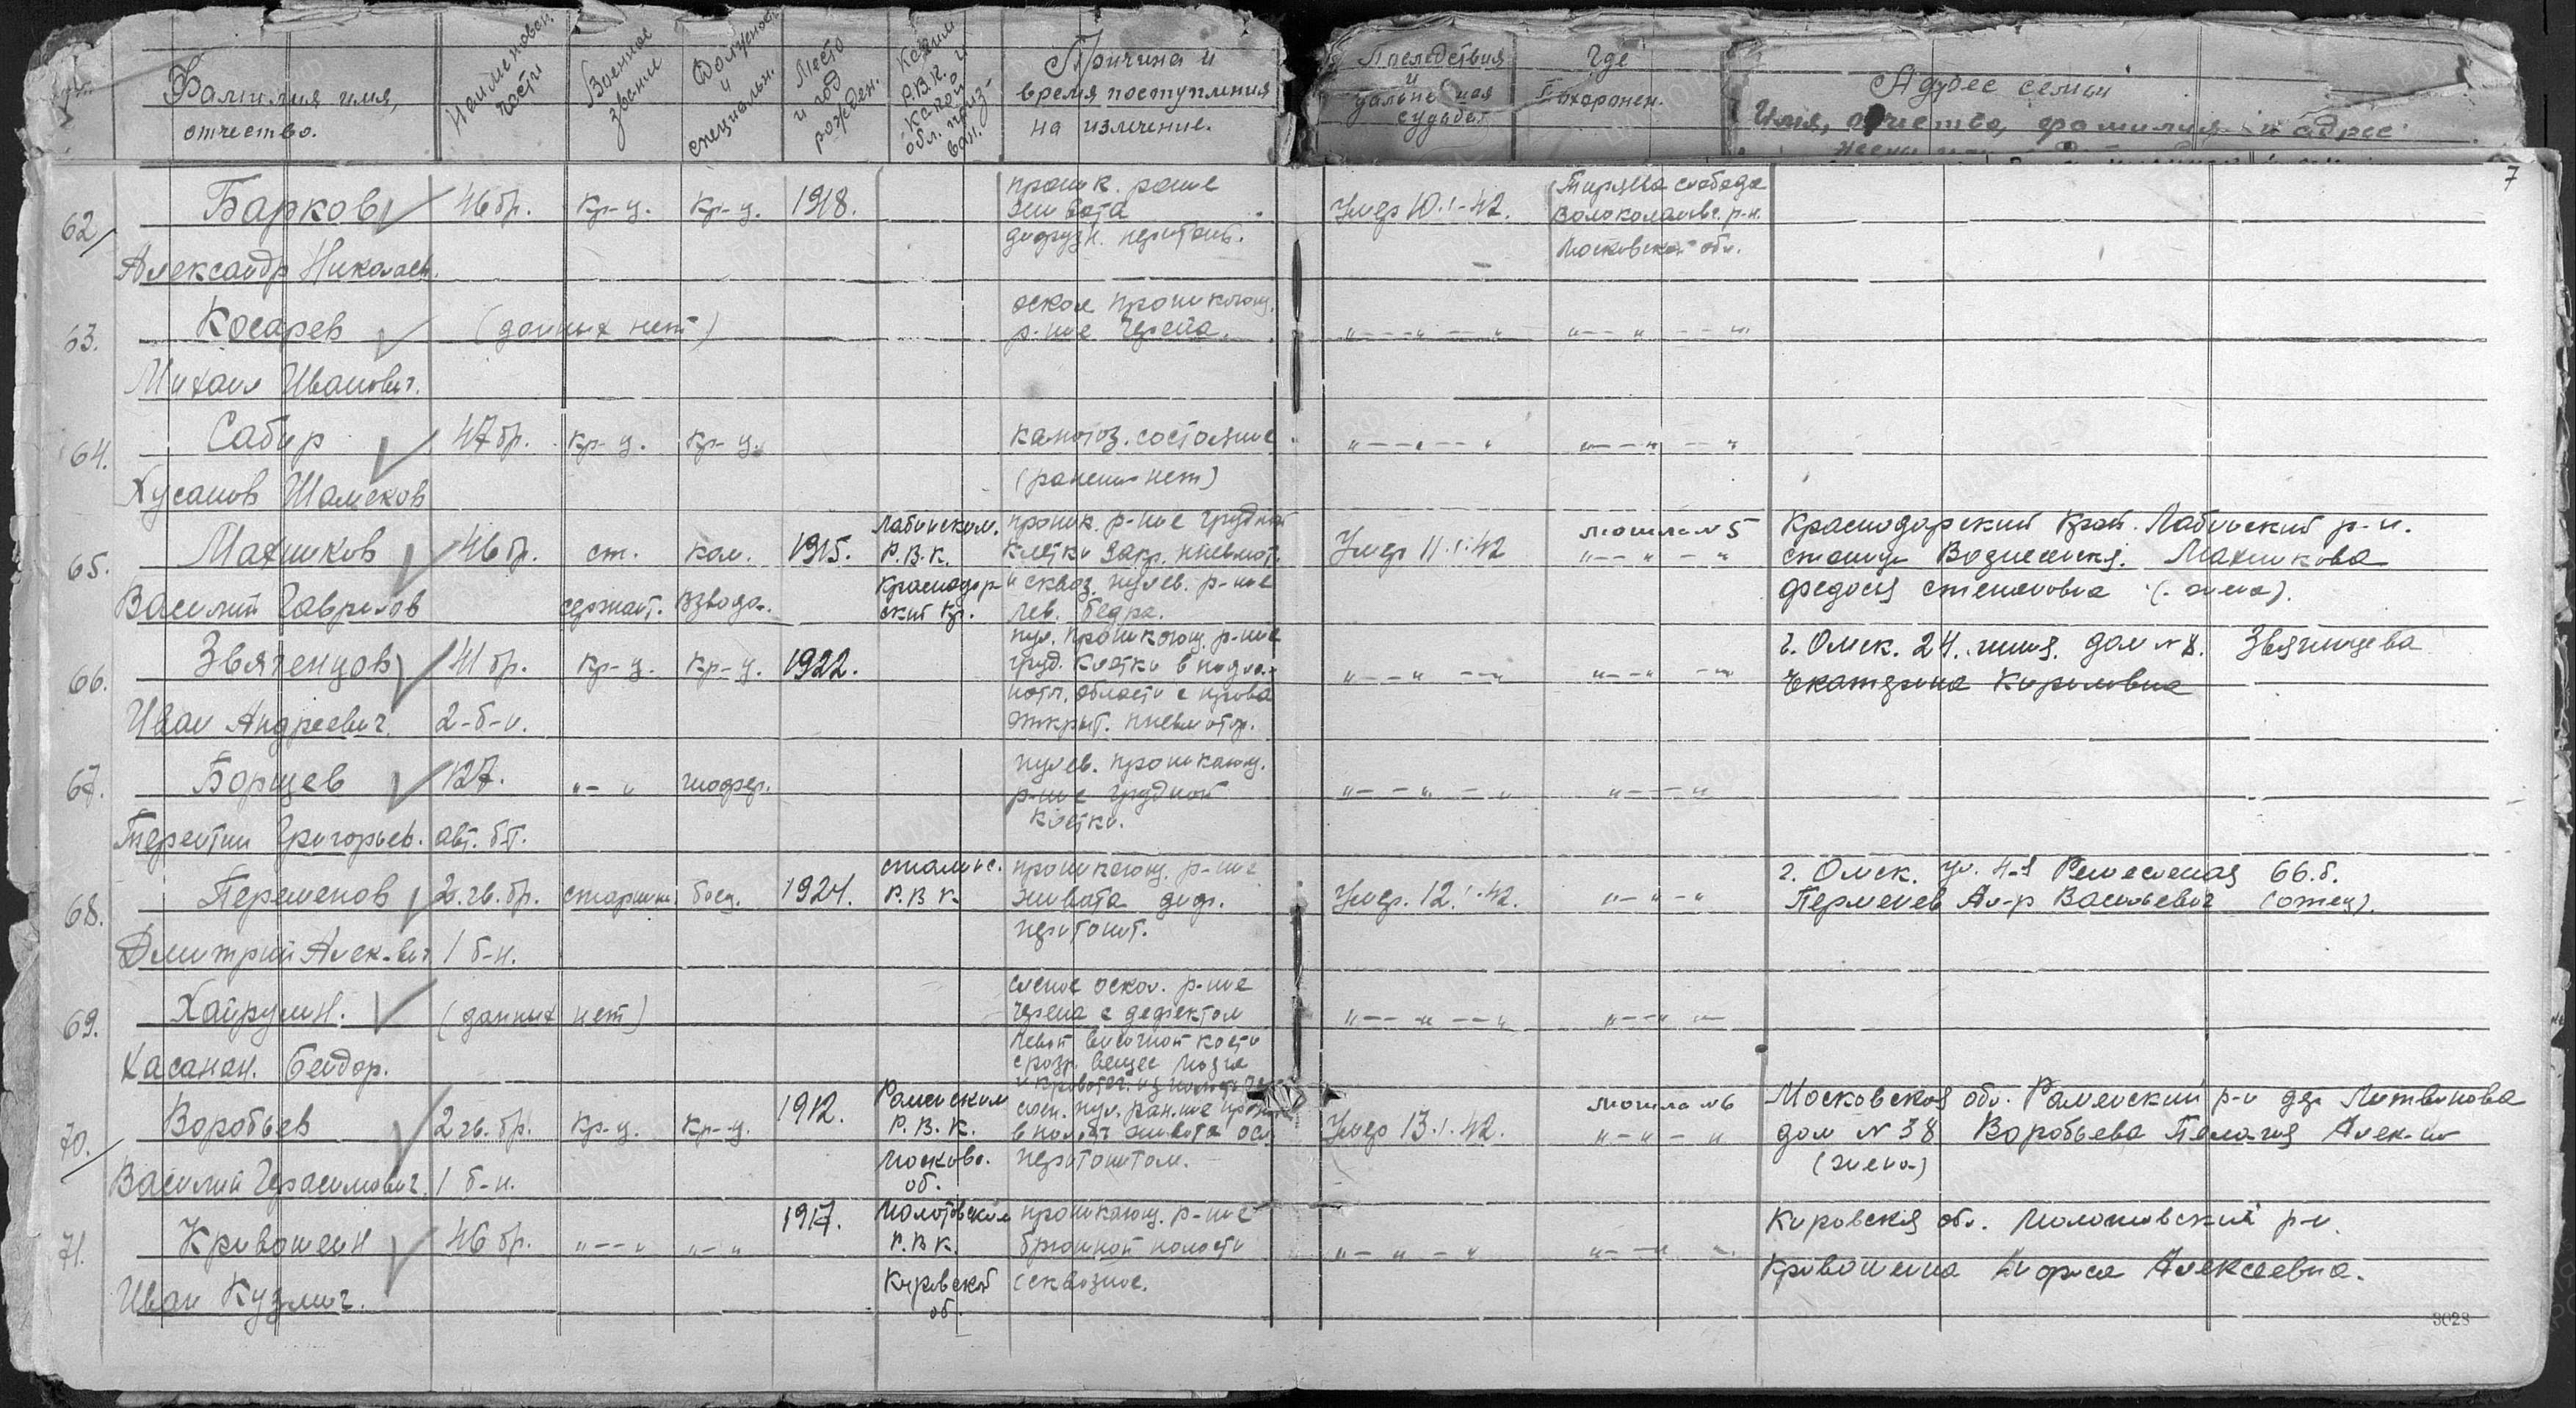 Фамилия имя,
отчество.
Наименован.
части
Военное
звание
Должность
и
специальн.
Место
и год
рожден.
Каким
Р.В.К. и
какой
обл. призван.
Причина и
время поступления
на излечение.
Последствия
и
дальнейшая
судьба
Где
Похоронен.
Адрес семьи
Имя, отчество, фамилия и адрес
7
62 Барков 46 бр. кр-ц. кр-ц. 1918. проник. рание Умер 10.1-42. Тиряева слобода
живота Волоколамск. р-н.
диффузн. перитонит. Московской обл.
Александр Николаев.
63. Косарев (данных нет) оскол проникающ. „ — „ — „ „ — „ — „
р-ние черепа.
Михаил Иванович.
64. Сабир 47 бр. кр-ц. кр-ц. состояние „ — „ — „ „ — „ — „
(ранения нет)
Хусанов Шамеков
65. Махников 46 бр. ст. ком. 1915. Лабинским. проник. р-ние грудной Умер 11.1.42 могила № 5 Краснодарский край. Лабинский р-н.
Р.В.К. клетки закр. пневмот. „ — „ — „ станица Вознесенск. Махникова
Василий Гаврилов сержант. взвода. Краснодарский кр. и сквоз. пулев. р-ние Федосья Степановна (жена).
лев. бедра.
66. Звягенцов 41 бр. кр-ц. кр-ц. 1922. пул. проникающ. р-ние „ — „ — „ „ — „ — „ г. Омск. 24. линия. дом № 8. Звягинцева
груд. клетки в Екатерина Кириловна
Иван Андреевич. 2-б-н. области с
открыт. пневмотор.
67. Борщев 127. „ — „ шофер. пулев. проникающ. „ — „ — „ „ — „
р-ние грудной
клетки.
Терентии Григорьев. авт. б-т.
68. Перменов 2. гв. бр. старшин. боец. 1921. сталинс. проникающ. р-ние Умер. 12.1.42. „ — „ — „ г. Омск. ул. 4-я Ремесленая 66.б.
Р.В.К. живота диф. Перменев Ал-р Васильевич (отец).
перитонит.
Дмитрий Алек-вич 1 б-н.
69. Хайрулин. (данных нет) слепое оскол. р-ние „ — „ — „ „ — „
черепа с дефектом
левой височной кости
Хасанан. с разр. вещес мозга
70. Воробьев 2 гв. бр. кр-ц. кр-ц. 1912. Раменским слеп. пул. ран-ние Умер 13.1.42. могила № 6 Московская обл. Раменский р-н дер. Литвинова
Р.В.К. живота „ — „ — „ дом № 38 Воробьева Пелагия Алек-
Василий Герасимович. 1 б-н. московс. об. перитонитом. (жена)
71. Кривошеин 46 бр. „ — „ „ — „ 1917. Молотовским проникающ. р-ние „ — „ — „ „ — „ Кировская обл. Молотовский р-н.
Р.В.К. брюшной полости
Иван Кузмич. Кировской об. (сквозное. Кривошеина Алексеевна.
3028